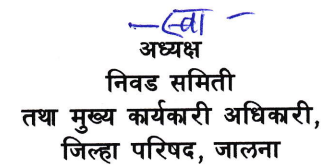 -स्वा-
अध्यक्ष
निवड समिती
तथा मुख्य कार्यकारी अधिकारी,
जिल्हा परिषद, जालना